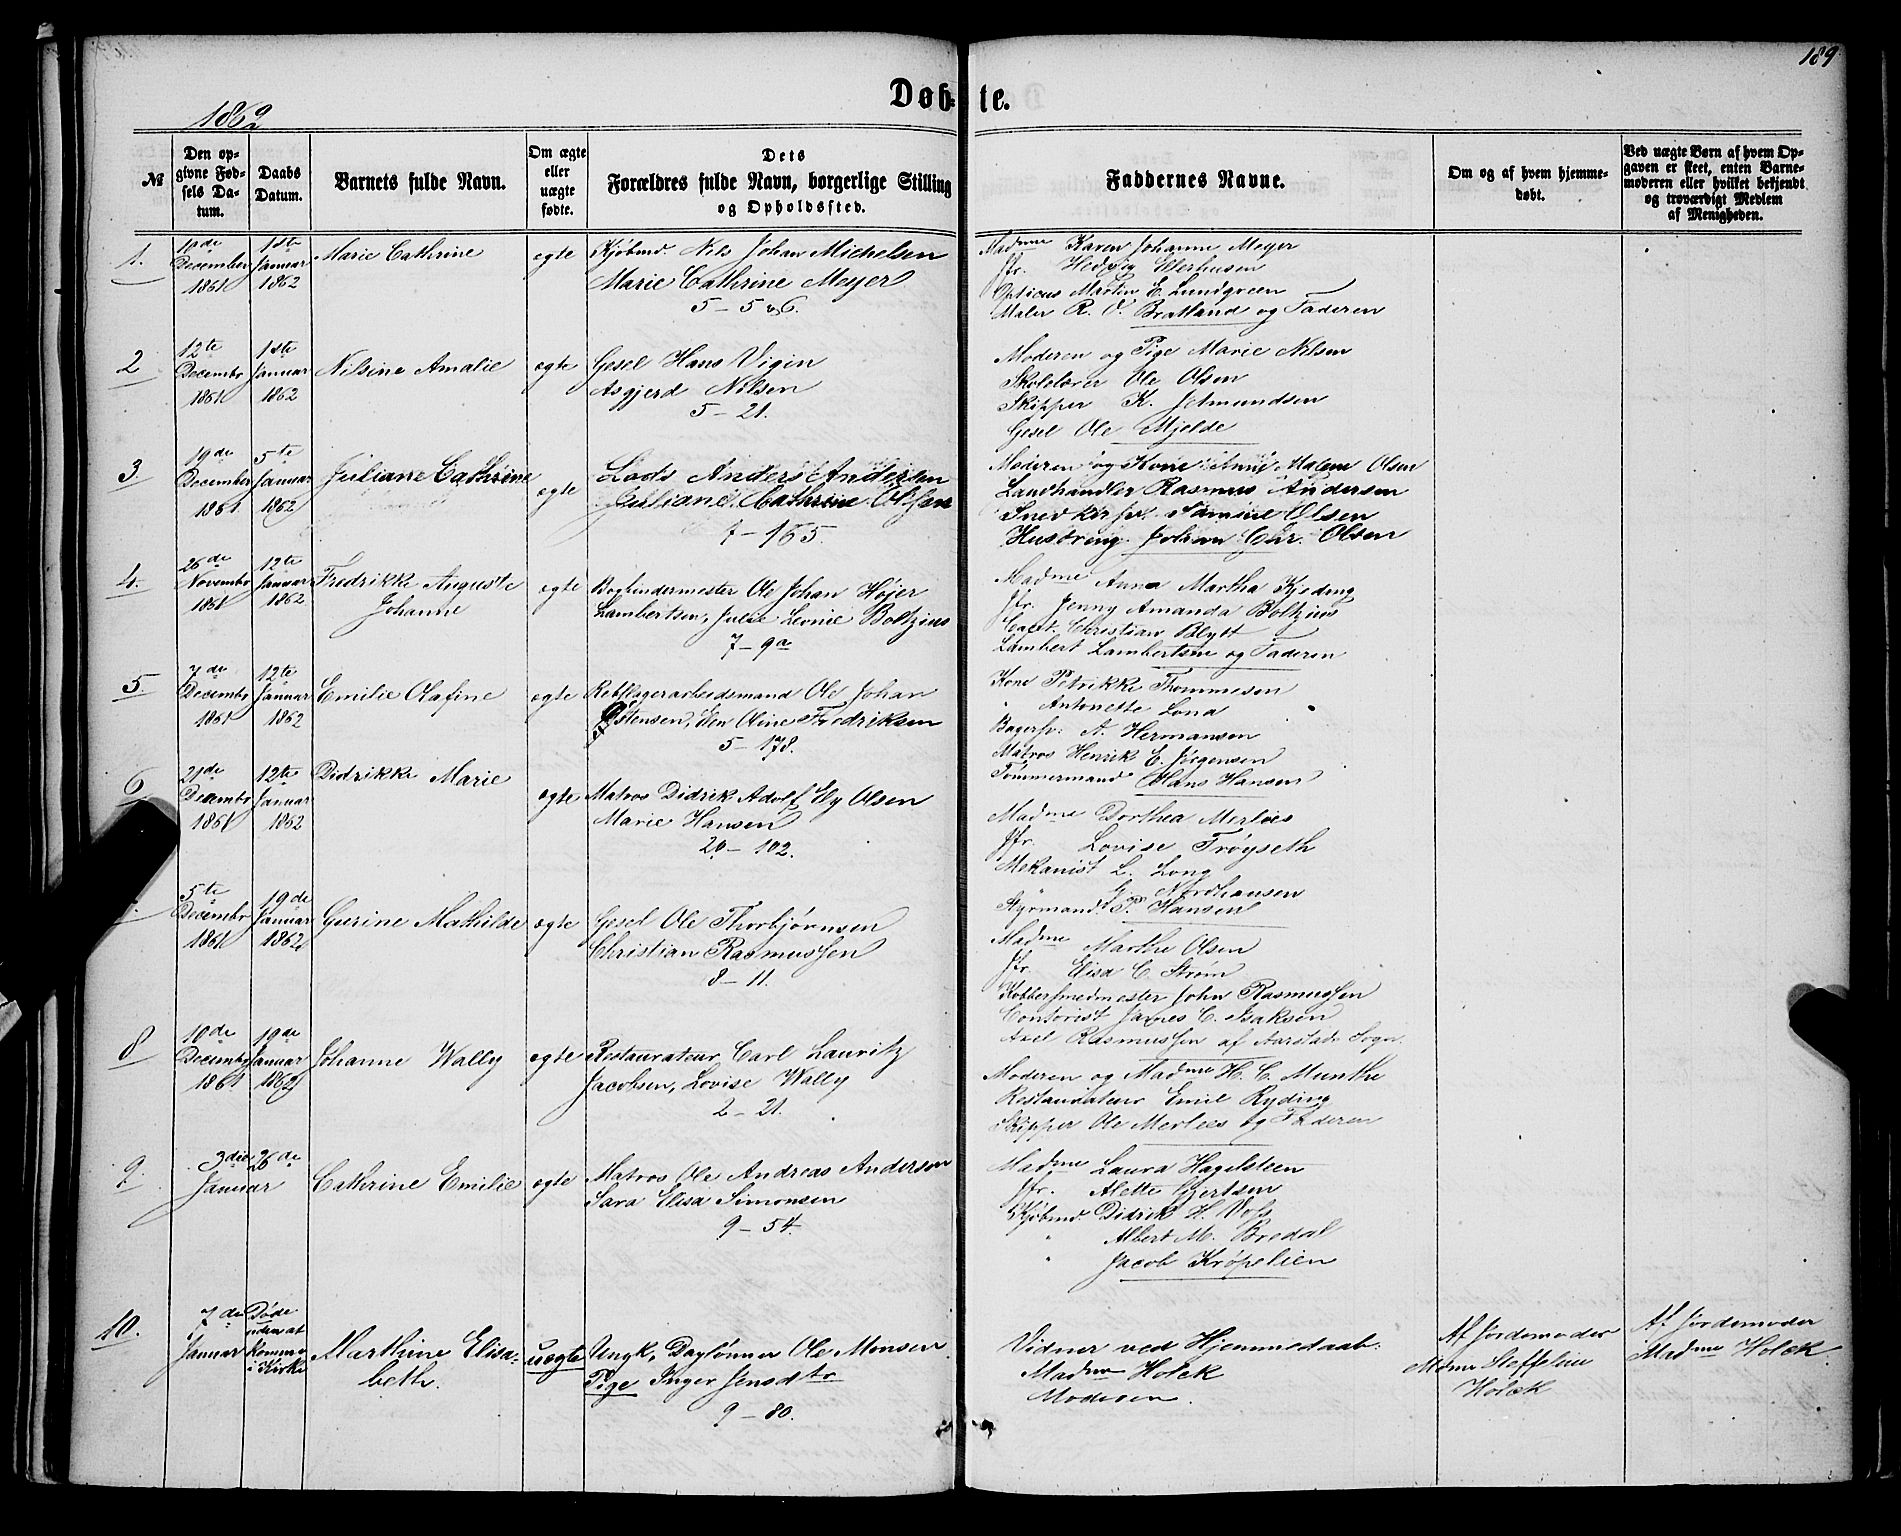 189
1862
Døbte.
№
Den opgivne Fødsels Datum.
Daabs Datum.
Barnets fulde Navn.
Om ægte eller uægte fødte.
Dets Forældres fulde Navn, borgerlige Stilling og Opholdssted.
Faddernes Navne.
Om og af hvem hjemmedøbt.
Ved uægte Børn af hvem Opgaven er skeet, enten Barnemoderen eller hvilket bekjendt og troværdigt Medlem af Menigheden.
1.
19de December 1861
1ste Januar 1862
Marie Cathrine
egte
Kjøbmd. Nils Johan Michelsen
Marie Cathrine Meyer
5 – 5 & 6.
Madme Karen Johanne Meyer
Jfr. Hedvig Ellerhusen
Opticus Martin E. Lundgreen
Maler R. O. Bratland og Faderen
2
12te Decembr 1861
1ste Januar 1862
Nilsine Amalie
egte
Gesel Hans Vigin
Asgjerd Nilsen
5 – 21.
Moderen og Pige Marie Nilsen
Skolelærer Ole Olsen
Skipper K. Jetmundsen
Gesel Ole Mjelde
3
19de December 1861
5te Januar 1862
Juliane Cathrine
egte
Lods Anders Andersen
Juliane Cathrine Olsen
7 – 165.
Moderen og Kone Anne Malene Olsen
Landhandler Rasmus Andersen
Snedkersv. Samuel Olsen
Husdreng Johan Chr. Olsen
4.
26de Novembr 1861
12te Januar 1862
Fredrikke Auguste
Johanne
egte
Bogbindermester Ole Johan Højer
Lambertsen, Julie Leonie Boltzius
7 – 9a
Madme Anna Martha Kjeding
Jfr. Jenny Amanda Boltzius
Capt. Christian Blytt
Lambert Lambertsen og Faderen
5
7de Decembr 1861
12te Januar 1862
Emilie Olafine
egte
Rebslagerarbeidsmand Ole Johan
Østensen, Elen Oline Fredriksen
5 – 178.
Kone Petrikke Thommesen
" Antonette Lona
Bagersv. A. Hermansen
Matros Henrik E. Jørgensen
Tømmermand Hans Hansen
6
21de Decembr 1861
12te Januar 1862
Didrikke Marie
egte
Matros Didrik Adolf Ely Olsen
Marie Hansen
20 – 102.
Madme Dorthea Merlees
Jfr. Lovise Trøyseth
Mekanist L. Long
" G. Nordhausen
Styrmand P. Hansen
5te Decembr 1861
19de Januar 1862
Gurine Mathilde
egte
Gesel Ole Thorbjørnsen
Christian Rasmussen
8 – 11.
Madme Marthe Olsen
Jfr. Elisa C. Strøm
Kobbersmedmester John Rasmussen
Contorist James C. Isaksen
Axel Rasmussen af Aarstads Sogn.
8
10de Decembr 1861
19de Januar 1862
Johanne Wally
egte
Restaurateur Carl Lauritz
Jacobsen, Lovise Wally
2 – 21.
Moderen og Madme H. C. Munthe
Restaurateur Emil Ryding
Skipper Ole Merlees og Faderen
9.
3die Januar
26de
Cathrine Emilie
egte
Matros Ole Andreas Andersen
Sara Elisa Simonsen
9 – 54.
Madme Laura Hagelsteen
Jfr. Alette Gjertsen
Kjøbmd. Didrik H. Voss
" Albert M. Bredal
" Jacob Krøpelien
10.
7de Januar
Døde uden at komme i Kirke
Marthine Elisabeth.
uegte
Ungk. Daglønner Ole Monsen
Pige Inger Jensdtr
9 – 80.
Vidner ved Hjemmedaab.
Madme Holck
Moderen.
Af Jordemoder
Mdme Steffeline
Holck
Af Jordemoder
Madme Holck.